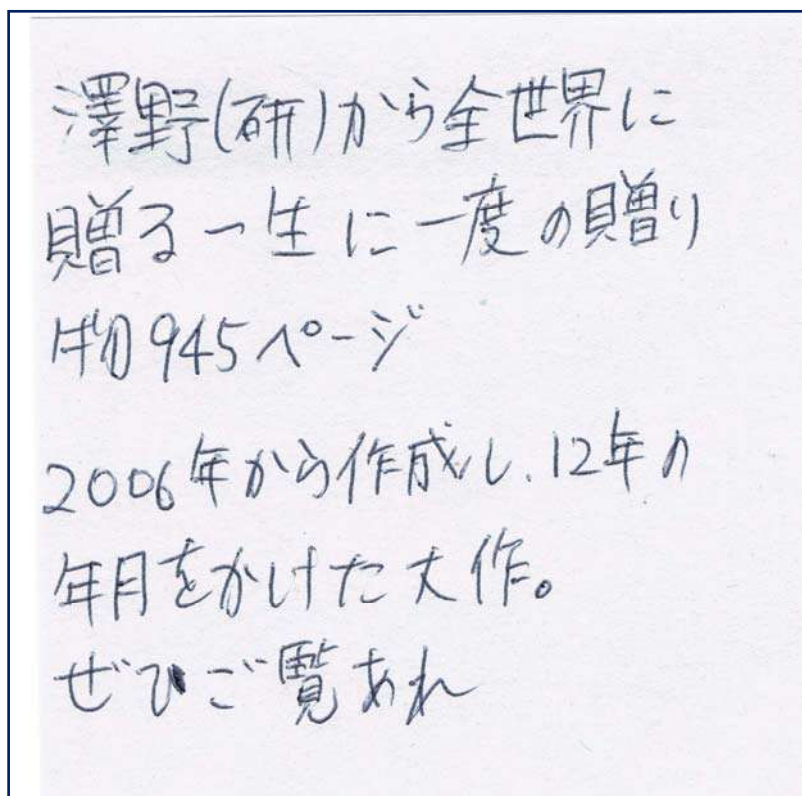 澤野(研)から全世界に
贈る一生に一度の贈り
物945ページ
2006年から作成し、12年の
年月をかけた大作。
ぜひご覧あれ